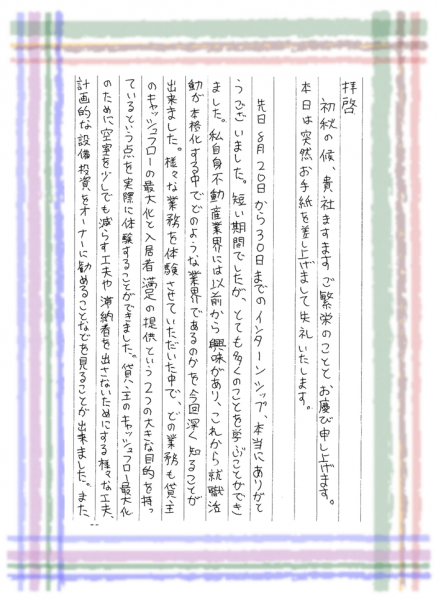 拝啓
初秋の候、貴社ますますご繁栄のこととお慶び申し上げます。
本日は突然お手紙を差し上げまして失礼いたします。
先日8月20日から30日までのインターンシップ、本当にありがと
うございました。短い期間でしたが、とても多くのことを学ぶことができ
ました。私自身不動産業界には以前から興味があり、これから就職活
動が本格化する中でどのような業界であるのかを今回深く知ることが
出来ました。様々な業務を体験させていただいた中で、どの業務も貸主
のキャッシュフローの最大化と入居者満足の提供という2つの大きな目的を持っ
ているという点を実際に体験することができました。貸主のキャッシュフロー最大化
のために空室を少しでも減らす工夫や滞納者を出さないためにする様々な工夫、
計画的な設備投資をオーナーに勧めることなどを見ることが出来ました。また、